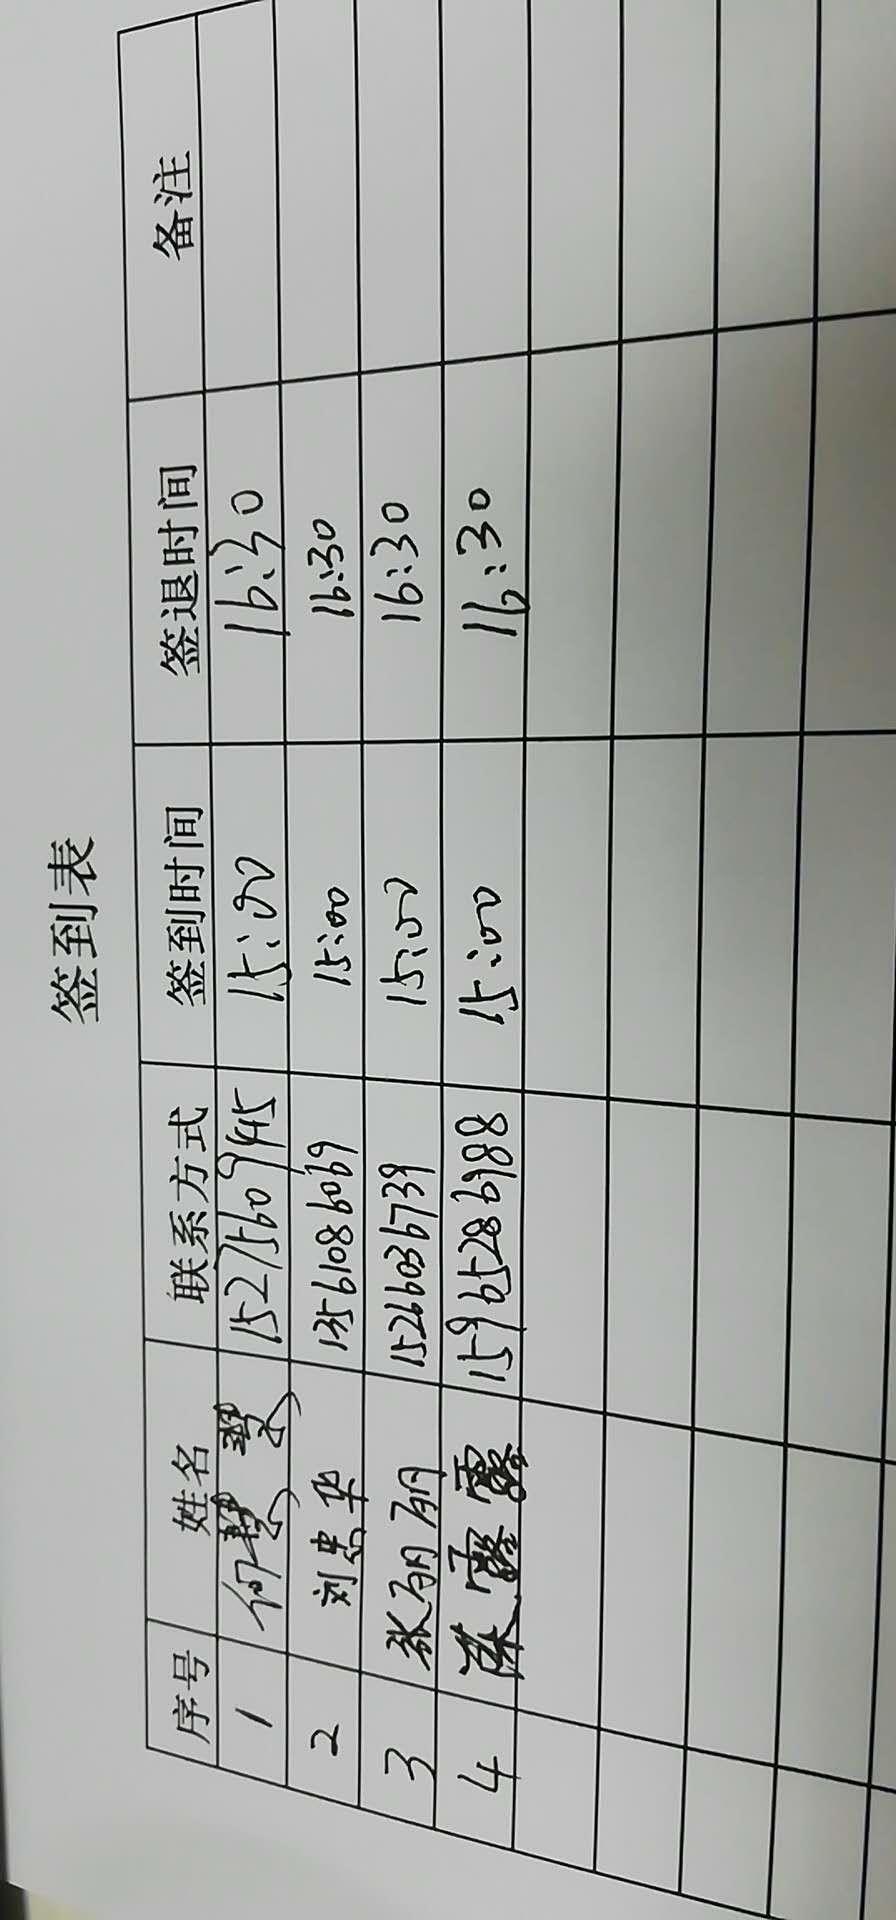 签到表
序号 姓名 联系方式 签到时间 签退时间 备注
1 何慧慧 15275609745 15:00 16:30
2 刘忠华 13561086069 15:00 16:30
3 张丽丽 15266036739 15:00 16:30
4 陈露露 15965286988 15:00 16:30